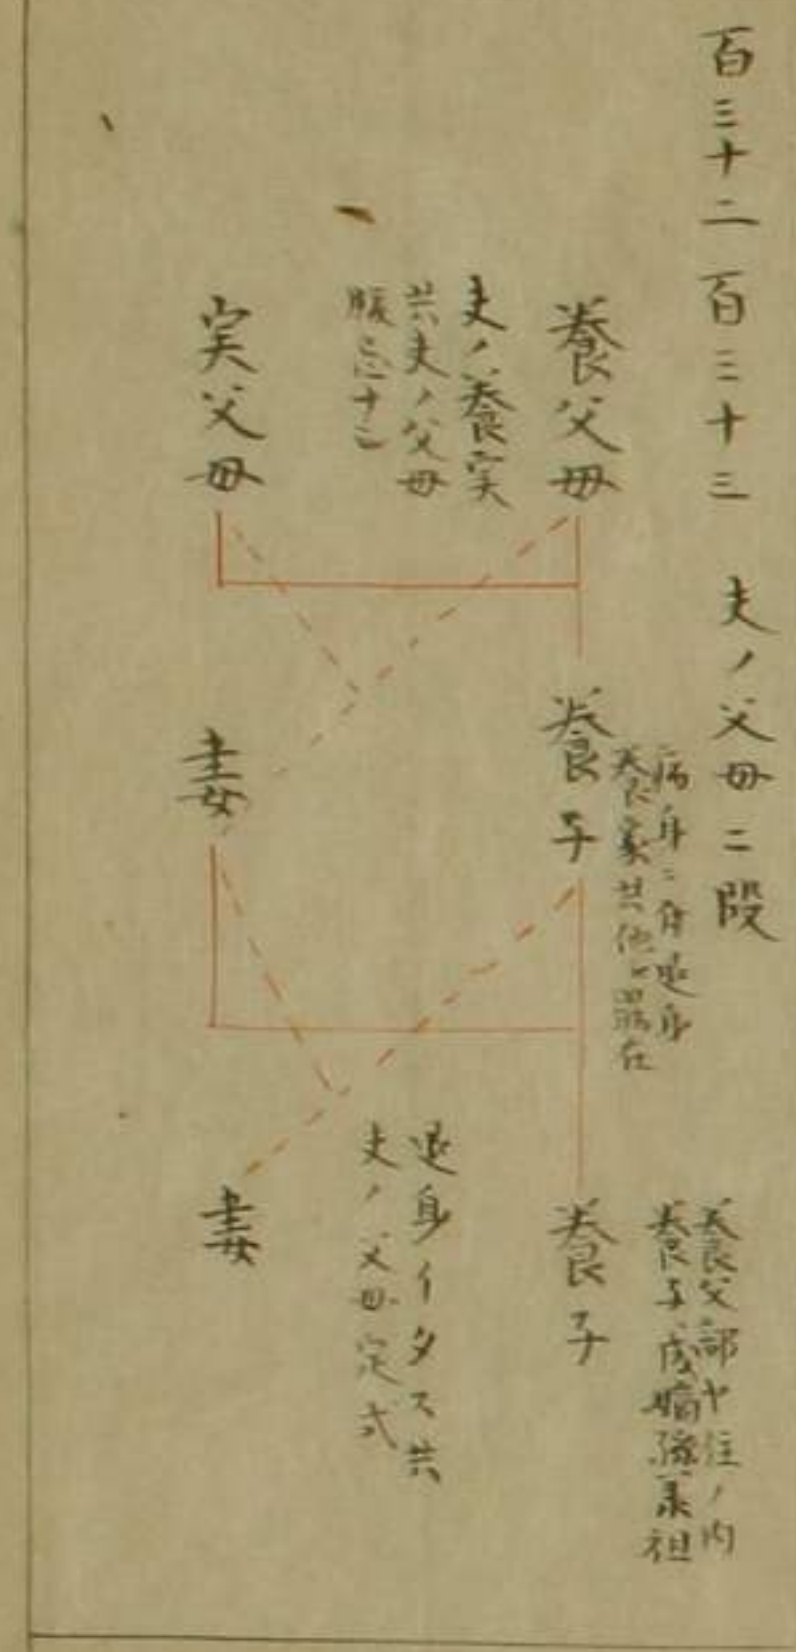 百三十二 百三十三 夫ノ父母ニ段
養父母
夫ノ養実
共夫ノ父母
服忌十
実父母
病身ニ付退身
養家共他
養子
妻
養父部ヤ住ノ内
養子成嫡孫承祖
養子
退身イタス共
夫ノ父母定式
妻